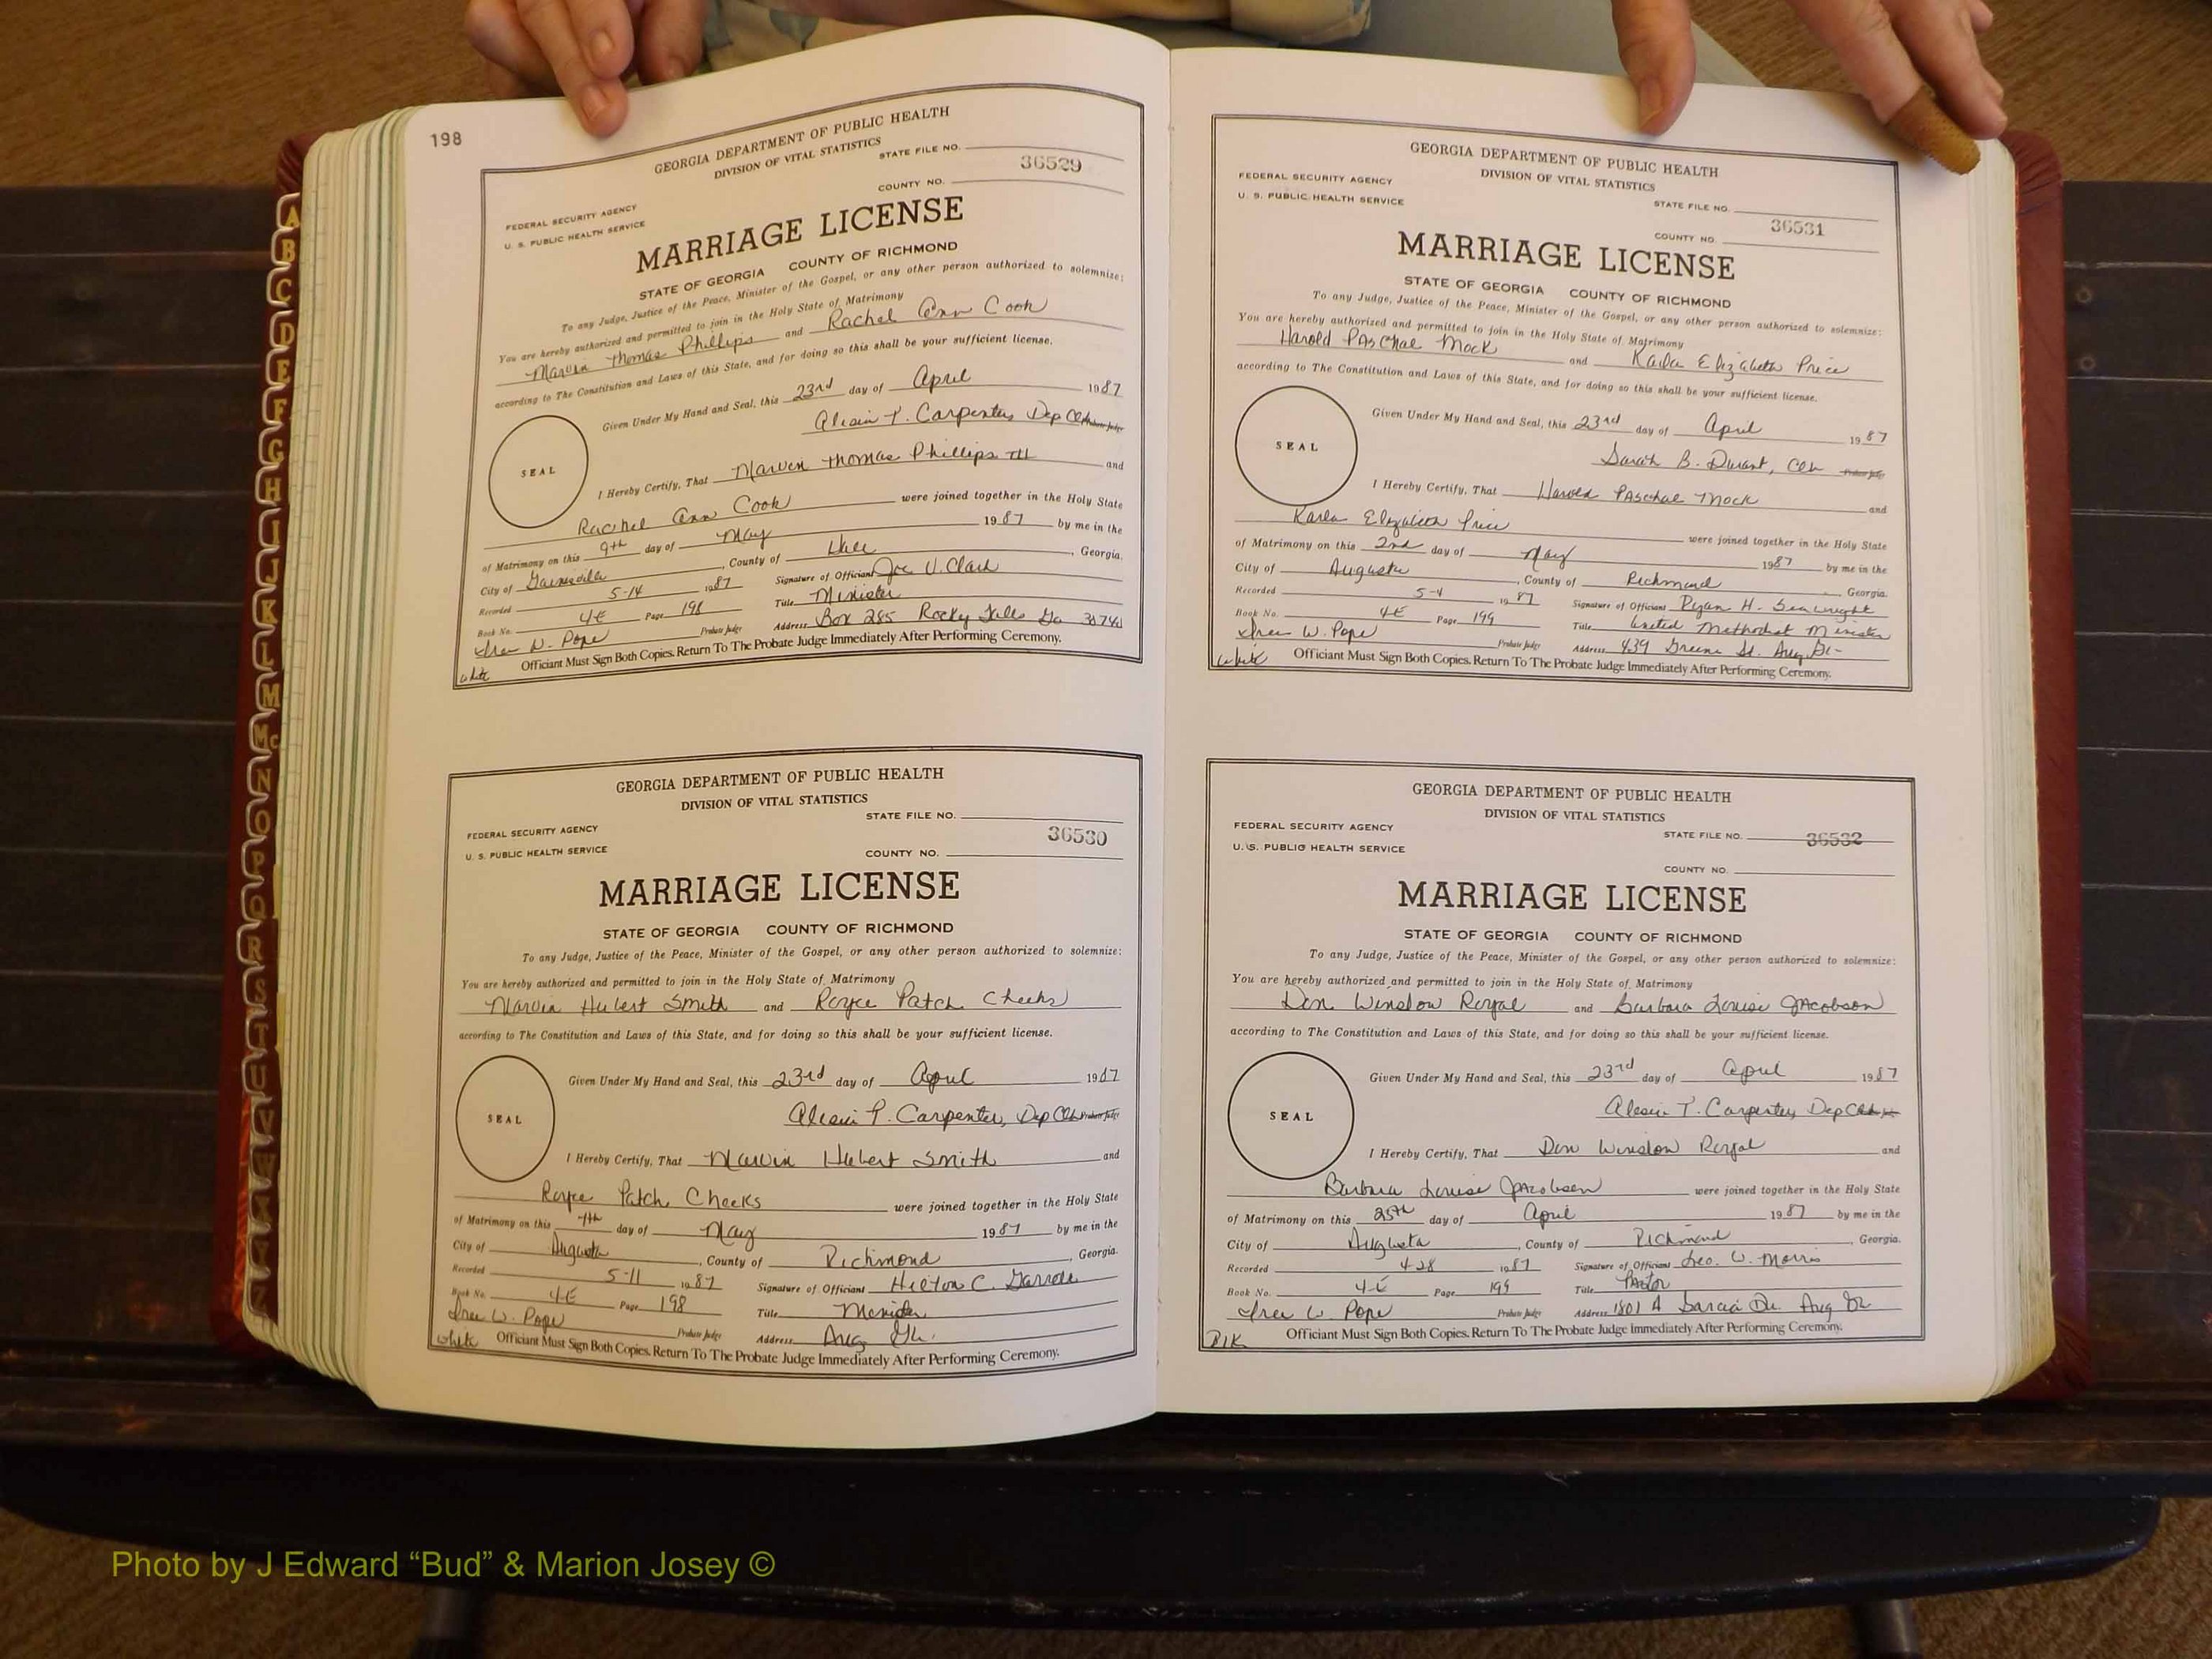 198
GEORGIA DEPARTMENT OF PUBLIC HEALTH
DIVISION OF VITAL STATISTICS
STATE FILE NO.
36529
COUNTY NO.
FEDERAL SECURITY AGENCY
U. S. PUBLIC HEALTH SERVICE
MARRIAGE LICENSE
STATE OF GEORGIA COUNTY OF RICHMOND
To any Judge, Justice of the Peace, Minister of the Gospel, or any other person authorized to solemnize:
You are hereby authorized and permitted to join in the Holy State of Matrimony
Marvin Thomas Phillips and Rachel Ann Cook
according to The Constitution and Laws of this State, and for doing so this shall be your sufficient license.
Given Under My Hand and Seal, this 23rd day of April 1987
T. Carpenter, Dep Clk Probate Judge
SEAL
I Hereby Certify, That Marvin Thomas Phillips III and
Rachel Ann Cook were joined together in the Holy State
of Matrimony on this 9th day of May 1987 by me in the
City of Gainesville, County of Hall, Georgia.
Recorded 5-14 1987 Signature of Official Joe V. Clark
Book No. 4E Page 198 Title Minister
W. Pope Probate Judge Address Box 285 Rocky Ga
White Officiant Must Sign Both Copies. Return To The Probate Judge Immediately After Performing Ceremony.
GEORGIA DEPARTMENT OF PUBLIC HEALTH
DIVISION OF VITAL STATISTICS
STATE FILE NO.
36530
FEDERAL SECURITY AGENCY
U. S. PUBLIC HEALTH SERVICE
COUNTY NO.
MARRIAGE LICENSE
STATE OF GEORGIA COUNTY OF RICHMOND
To any Judge, Justice of the Peace, Minister of the Gospel, or any other person authorized to solemnize:
You are hereby authorized and permitted to join in the Holy State of Matrimony
Marvin Hubert Smith and Royce Patch Cheeks
according to The Constitution and Laws of this State, and for doing so this shall be your sufficient license.
Given Under My Hand and Seal, this 23rd day of April 1987
T. Carpenter, Dep Clk Probate Judge
SEAL
I Hereby Certify, That Marvin Hubert Smith and
Royce Patch Cheeks were joined together in the Holy State
of Matrimony on this 7th day of May 1987 by me in the
City of Augusta, County of Richmond, Georgia.
Recorded 5-11 1987 Signature of Official C.
Book No. 4E Page 198 Title Minister
W. Pope Probate Judge Address Aug Ga.
White Officiant Must Sign Both Copies. Return To The Probate Judge Immediately After Performing Ceremony.
GEORGIA DEPARTMENT OF PUBLIC HEALTH
DIVISION OF VITAL STATISTICS
FEDERAL SECURITY AGENCY
U. S. PUBLIC HEALTH SERVICE
STATE FILE NO.
36531
COUNTY NO.
MARRIAGE LICENSE
STATE OF GEORGIA COUNTY OF RICHMOND
To any Judge, Justice of the Peace, Minister of the Gospel, or any other person authorized to solemnize:
You are hereby authorized and permitted to join in the Holy State of Matrimony
Harold Paschal Mock and Karla Elizabeth Price
according to The Constitution and Laws of this State, and for doing so this shall be your sufficient license.
Given Under My Hand and Seal, this 23rd day of April 1987
Sarah B. Durant, Clk Probate Judge
SEAL
I Hereby Certify, That Harold Paschal Mock and
Karla Elizabeth Price were joined together in the Holy State
of Matrimony on this 2nd day of May 1987 by me in the
City of Augusta, County of Richmond, Georgia.
Recorded 5-4 1987 Signature of Official Ryan H. Seawright
Book No. 4E Page 199 Title United Methodist Minister
W. Pope Probate Judge Address 439 Greene St. Aug. Ga-
White Officiant Must Sign Both Copies. Return To The Probate Judge Immediately After Performing Ceremony.
GEORGIA DEPARTMENT OF PUBLIC HEALTH
DIVISION OF VITAL STATISTICS
FEDERAL SECURITY AGENCY
U. S. PUBLIC HEALTH SERVICE
STATE FILE NO. 36532
COUNTY NO.
MARRIAGE LICENSE
STATE OF GEORGIA COUNTY OF RICHMOND
To any Judge, Justice of the Peace, Minister of the Gospel, or any other person authorized to solemnize:
You are hereby authorized and permitted to join in the Holy State of Matrimony
Don Winslow Royal and Barbara Louise Jacobson
according to The Constitution and Laws of this State, and for doing so this shall be your sufficient license.
Given Under My Hand and Seal, this 23rd day of April 1987
T. Carpenter, Dep Clk
SEAL
I Hereby Certify, That Don Winslow Royal and
Barbara Louise Jacobson were joined together in the Holy State
of Matrimony on this 25th day of April 1987 by me in the
City of Augusta, County of Richmond, Georgia.
Recorded 4-28 1987 Signature of Official Geo. W. Morris
Book No. 4-E Page 199 Title Pastor
W. Pope Probate Judge Address 1801 A Dr. Aug Ga
Blk Officiant Must Sign Both Copies. Return To The Probate Judge Immediately After Performing Ceremony.
A
B
C
D
E
F
G
H
I
J
K
L
M
Mc
N
O
P
Q
R
S
T
U
V
W
Photo by J Edward “Bud” & Marion Josey ©